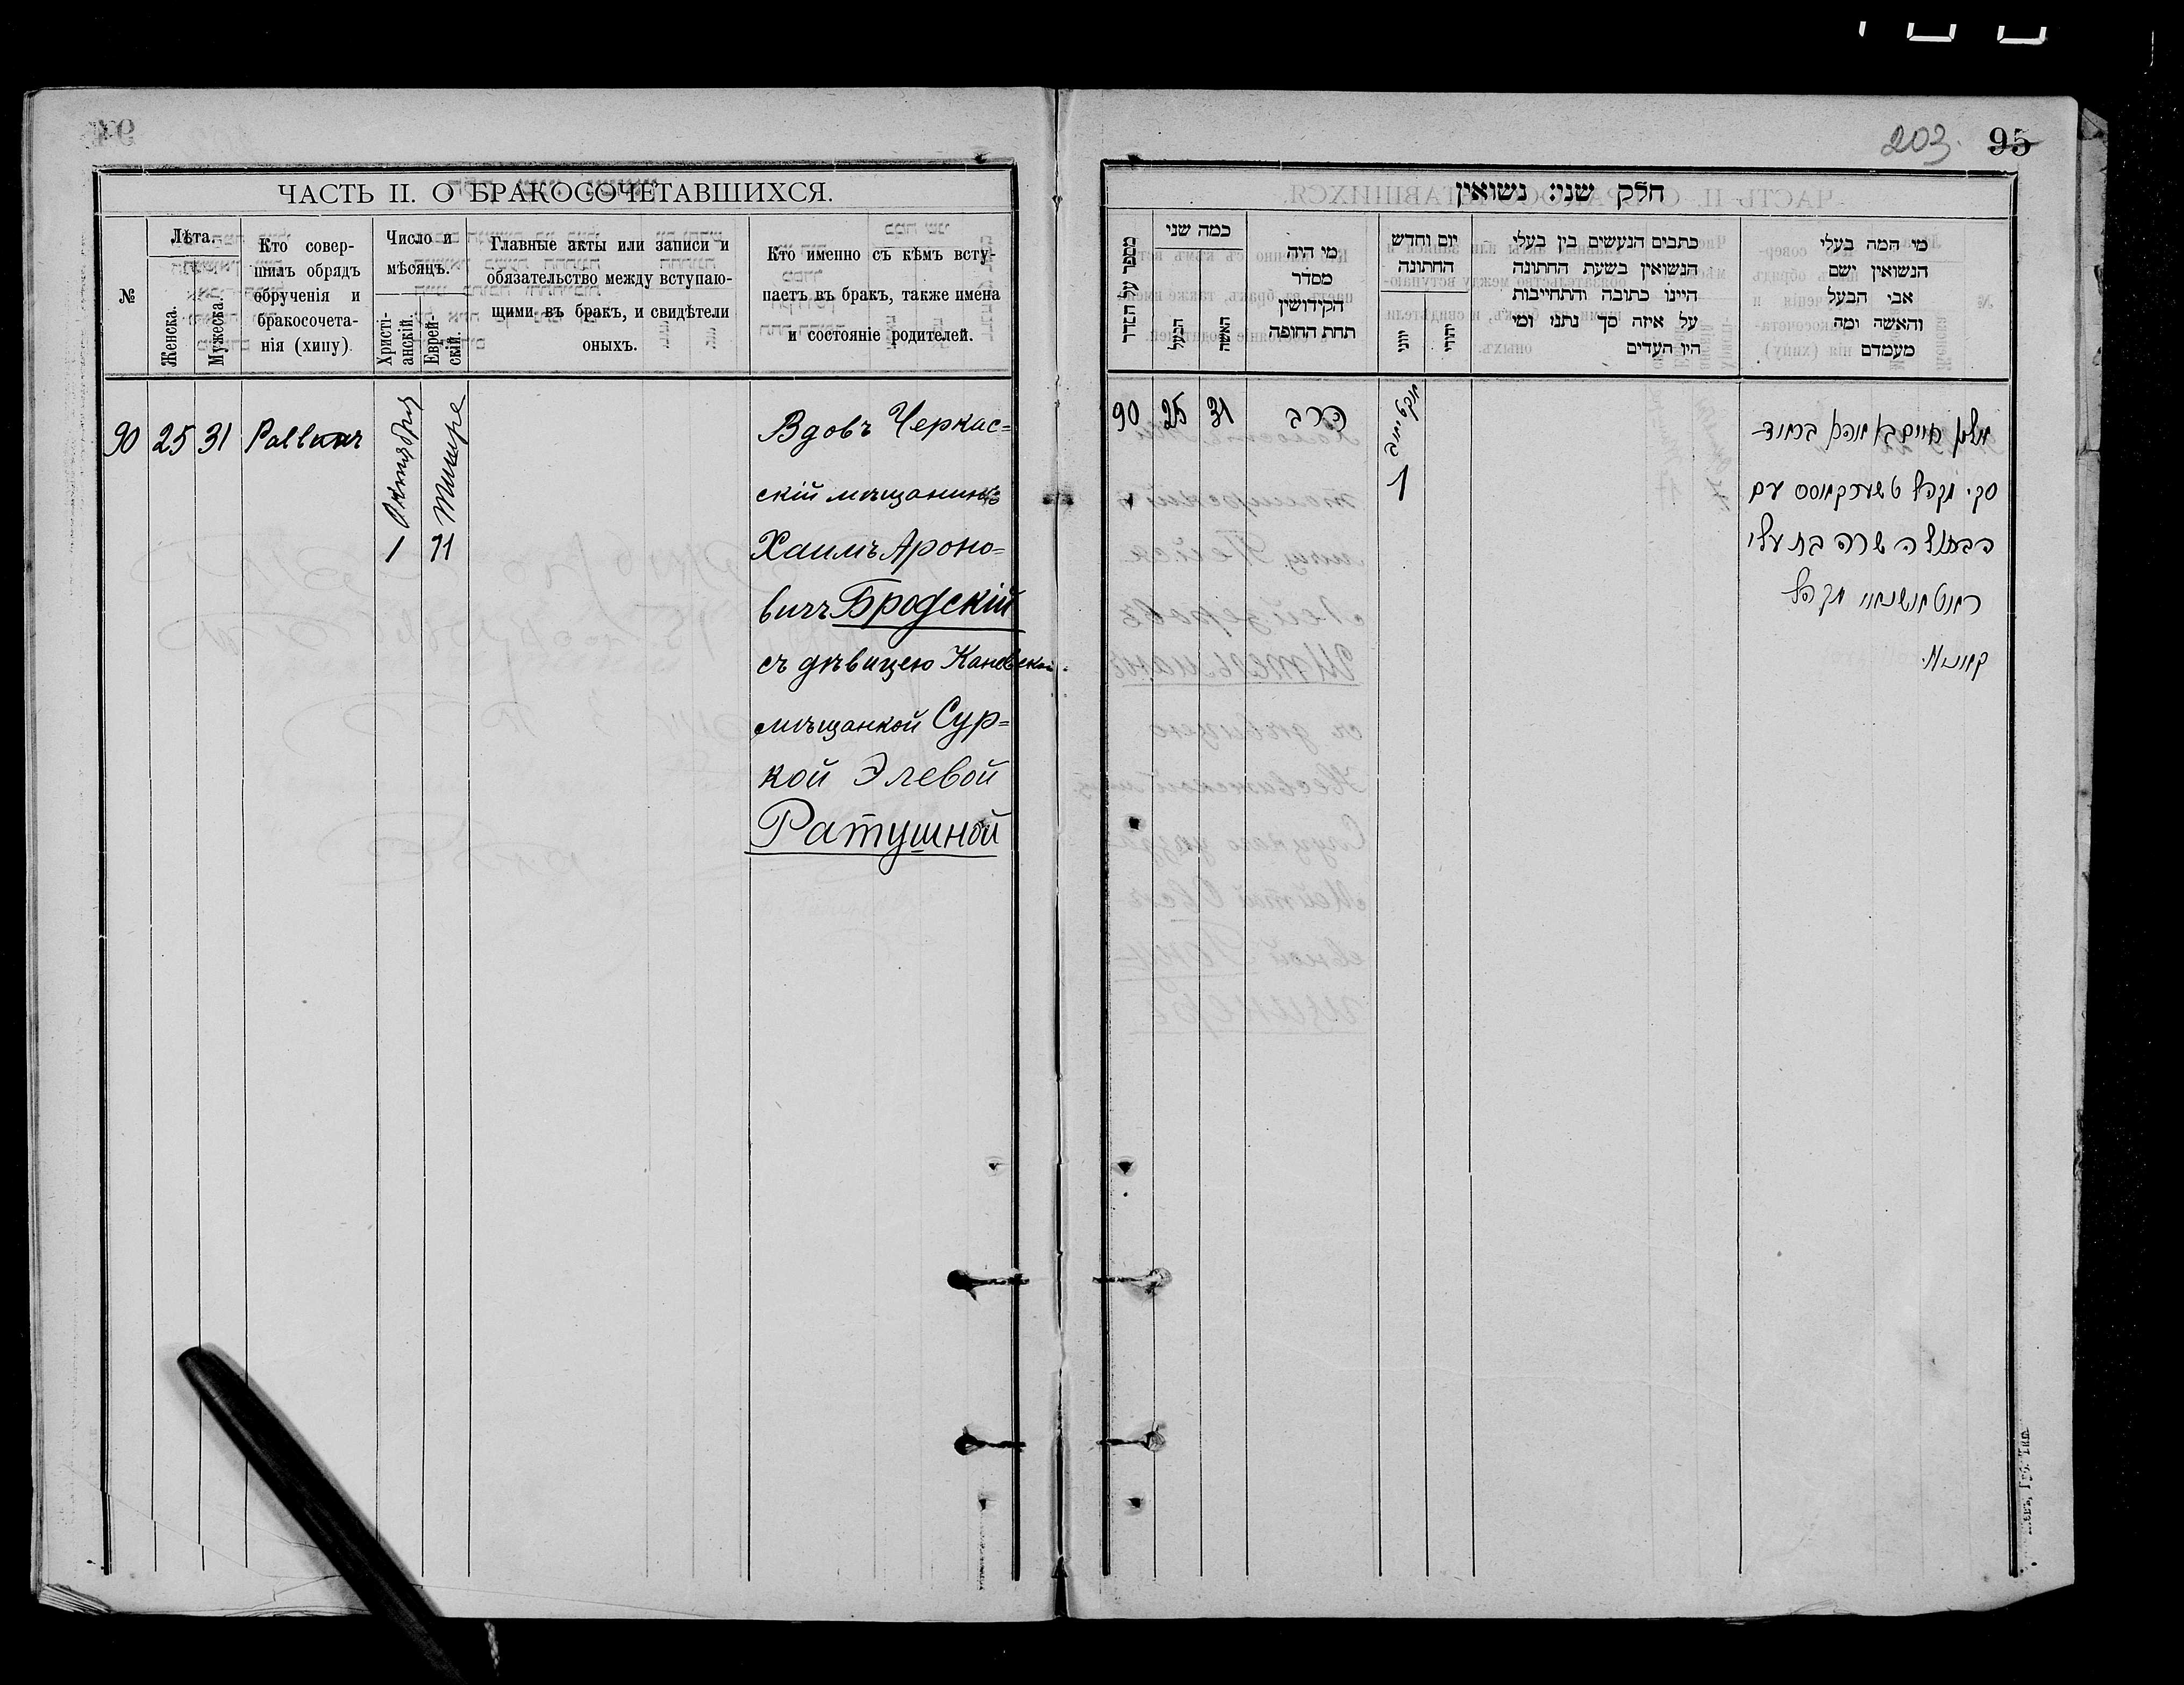 ЧАСТЬ II. О БРАКОСОЧЕТАВШИХСЯ.
№
Лѣта.
Женска.
Мужеска.
Кто совер-
шилъ обрядъ
обрученія и
бракосочета-
нія (хипу)
Число и
мѣсяцъ.
Христі-
анскій.
Еврей-
скій.
Главные акты или записи и
обязательство между вступаю-
щими въ бракъ, и свидѣтели
оныхъ.
Кто именно съ кѣмъ всту-
паетъ въ бракъ, также имена
и состояніе родителей.
90 25 31 Раввинъ
Октября
1
Тишре
11
Вдовъ Черкас=
скій мѣщанинъ
Хаимъ Ароно=
вичъ Бродскій
съ дѣвицею Каневской
мѣщанкой Сур=
кой Элевой
Ратушной
203. 95
חלק שני: נשואין
מספר על הסדר
כמה שני
הבעל
האשה
מי היה
מסדר
הקידושין
תחת החופה
יום וחדש
החתונה
יוני
יהודי
כתבים הנעשים בין בעלי
הנשואין בשעת החתונה
היינו כתובה והתחייבות
על איזה סך נתנו ומי
היו העדים
מי המה בעלי
הנשואין ושם
אבי הבעל
והאשה ומה
מעמדם
90 25 31 הרב
1
אלמן חיים בא אהרן בראד-
סקי מקהל טשערקאסס עם
הבתולה שרה בת עלי
ראטאושנאיי מקהל
קאניוו.